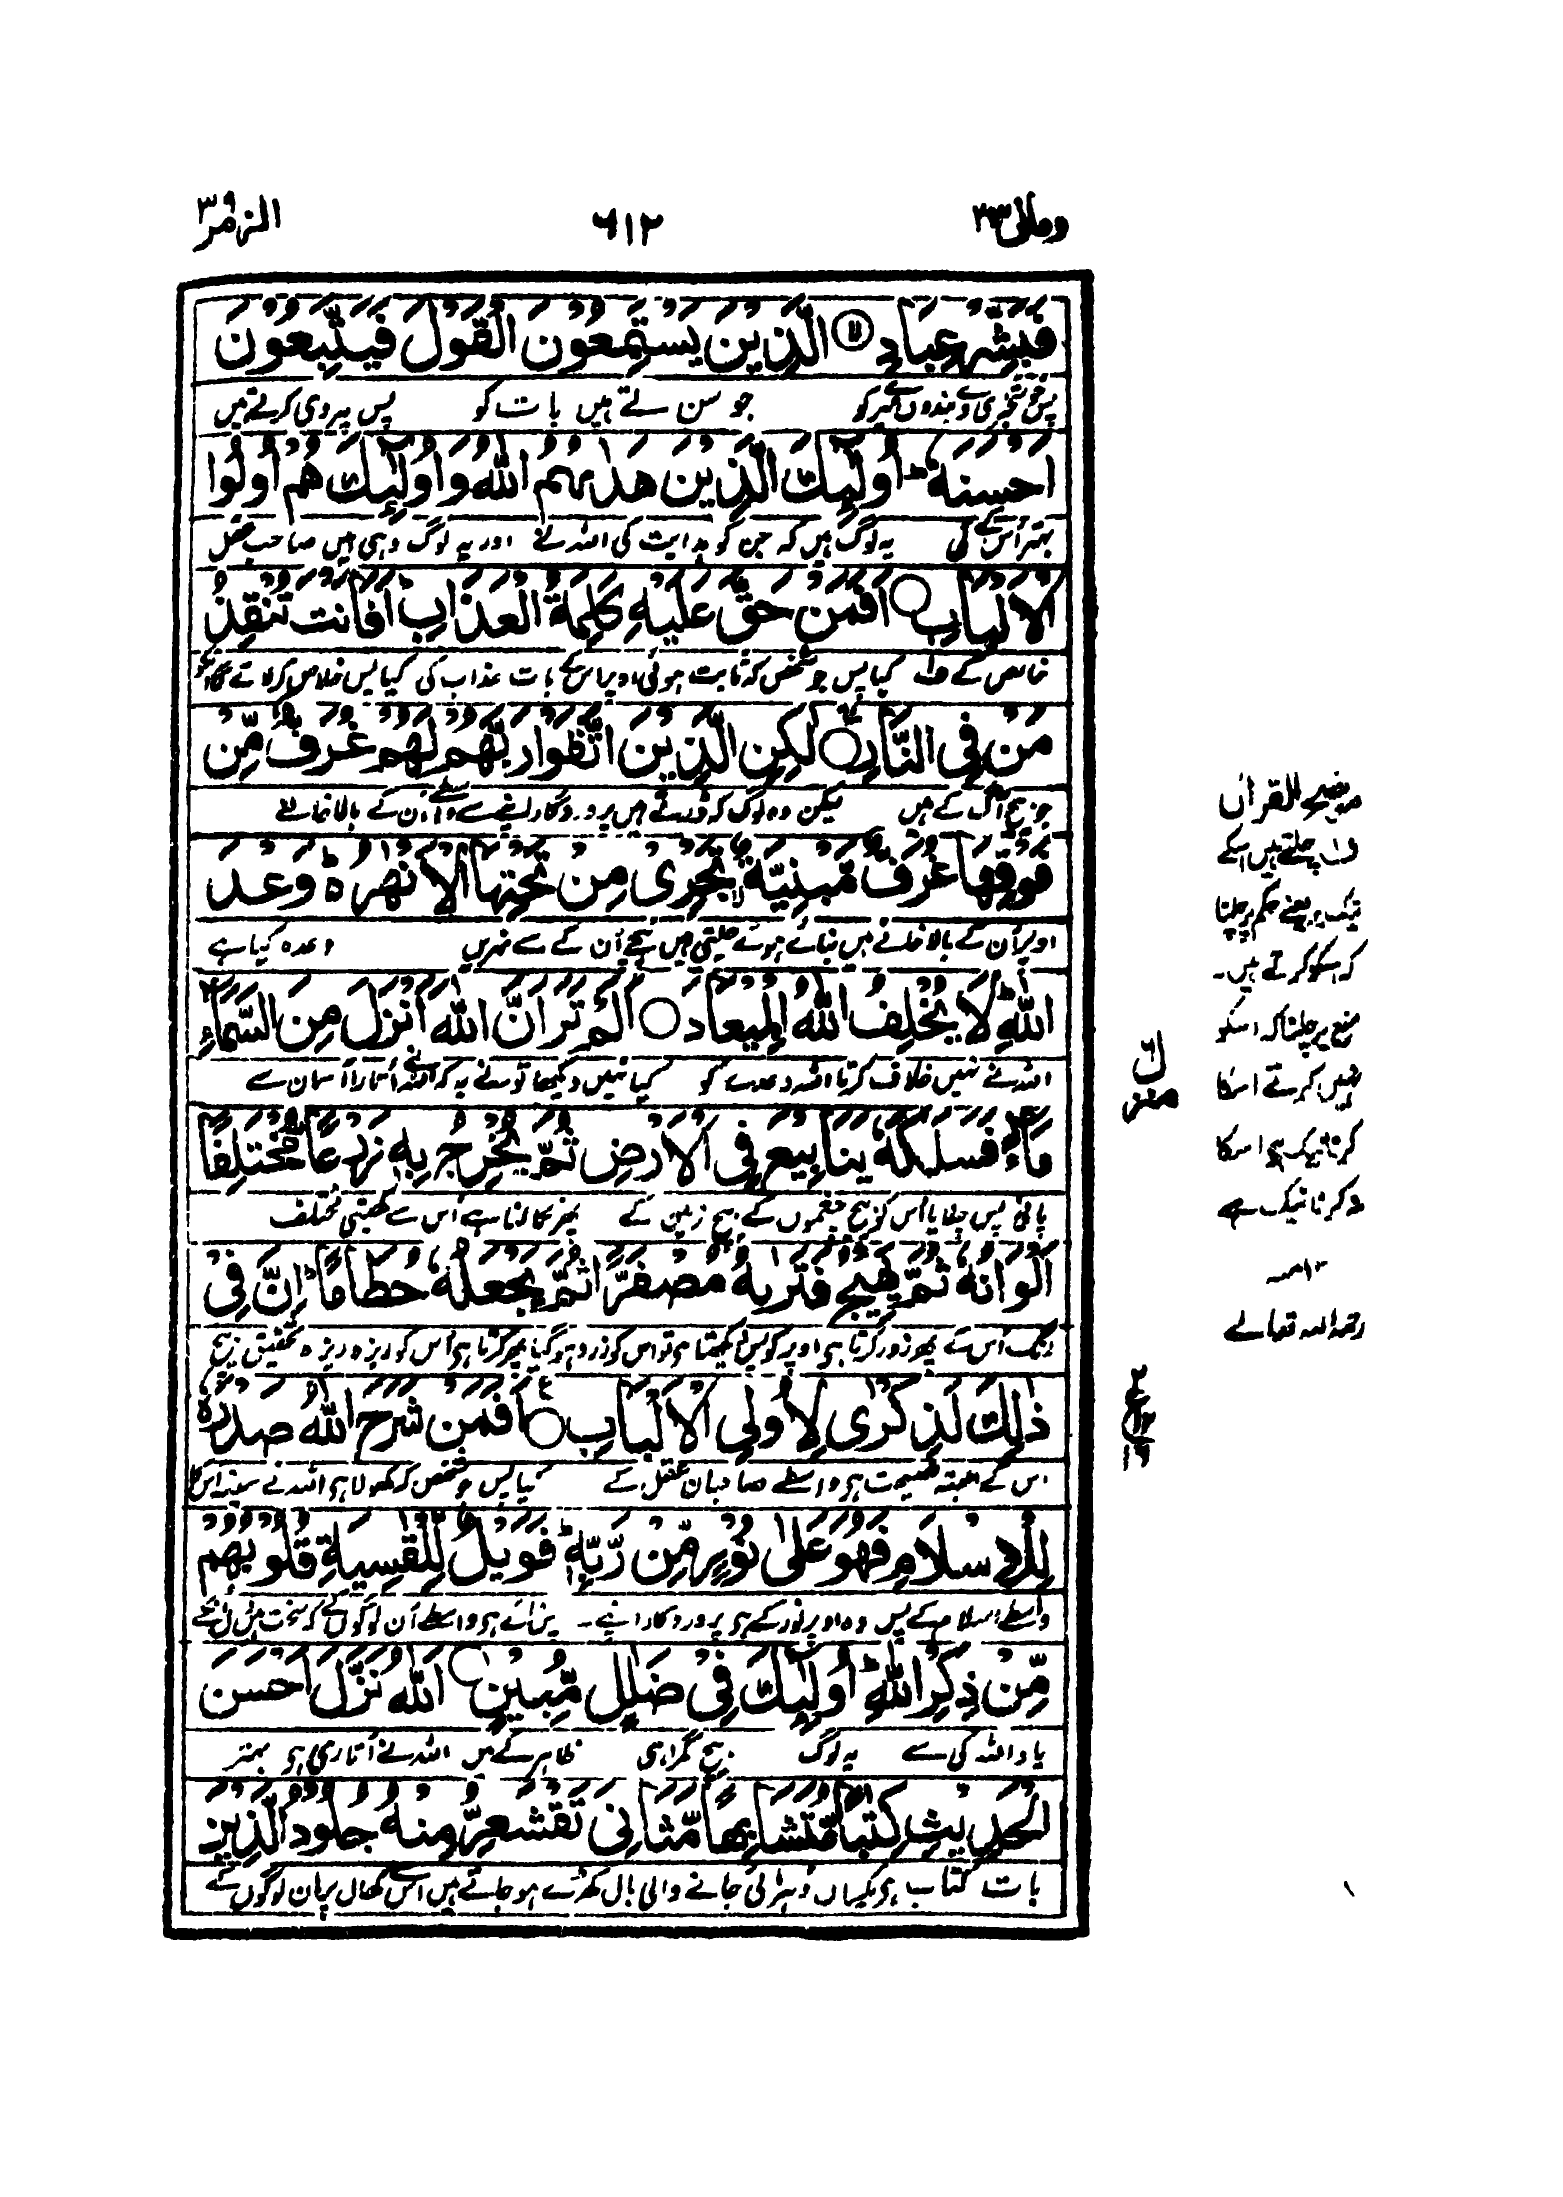 ومالی ۲۳
۶۱۲
الزمر ۳۹
فَبَشِّرْ عِبَادِ ۙ الَّذِيْنَ يَسْتَمِعُوْنَ الْقَوْلَ فَيَتَّبِعُوْنَ
پس خوشخبری دے بندوں میرے کو جو سنتے ہیں بات کو پس پیروی کرتے ہیں
اَحْسَنَهٗ ؕ اُولٰٓئِكَ الَّذِيْنَ هَدٰىهُمُ اللّٰهُ وَاُولٰٓئِكَ هُمْ اُولُوا
بہتر اُس کے کی یہ لوگ ہیں کہ جن کو ہدایت کی اللہ نے اور یہ لوگ وہی ہیں صاحب عقل
الْاَلْبَابِ ○ اَفَمَنْ حَقَّ عَلَيْهِ كَلِمَةُ الْعَذَابِ ؕ اَفَاَنْتَ تُنْقِذُ
خالص کے ف۱ کیا پس جو شخص کہ ثابت ہوئی اوپر اس کے بات عذاب کی کیا پس خلاص کر لاتے گا اس کو
مَنْ فِي النَّارِ ○ لٰكِنِ الَّذِيْنَ اتَّقَوْا رَبَّهُمْ لَهُمْ غُرَفٌ مِّنْ
جو بیچ آگ کے ہیں لیکن وہ لوگ کہ ڈرتے ہیں پروردگار اپنے سے واسطے اُن کے بالاخانے
فَوْقِهَا غُرَفٌ مَّبْنِيَّةٌ ۙ تَجْرِيْ مِنْ تَحْتِهَا الْاَنْهٰرُ ؕ وَعْدَ
اوپر اُن کے بالاخانے ہیں بنائے ہوئے چلتی ہیں نیچے اُن کے سے نہریں وعدہ کیا ہے
اللّٰهِ ؕ لَا يُخْلِفُ اللّٰهُ الْمِيْعَادَ ○ اَلَمْ تَرَ اَنَّ اللّٰهَ اَنْزَلَ مِنَ السَّمَآءِ
اللہ نے نہیں خلاف کرتا اللہ وعدے کو کیا نہیں دیکھا تو نے یہ کہ اللہ نے اُتارا آسمان سے
مَآءً فَسَلَكَهٗ يَنَابِيْعَ فِي الْاَرْضِ ثُمَّ يُخْرِجُ بِهٖ زَرْعًا مُّخْتَلِفًا
پانی پس چلایا اُس کو بیچ چشموں کے بیچ زمین کے پھر نکالتا ہے اُس سے کھیتی مختلف
اَلْوَانُهٗ ثُمَّ يَهِيْجُ فَتَرٰىهُ مُصْفَرًّا ثُمَّ يَجْعَلُهٗ حُطَامًا ؕ اِنَّ فِيْ
ذٰلِكَ لَذِكْرٰى لِاُولِي الْاَلْبَابِ ○ اَفَمَنْ شَرَحَ اللّٰهُ صَدْرَهٗ
اس کے البتہ نصیحت ہی واسطے صاحبان عقل کے کیا پس جو شخص کہ کھولا ہی اللہ نے سینہ اس کا
لِلْاِسْلَامِ فَهُوَ عَلٰى نُوْرٍ مِّنْ رَّبِّهٖ ؕ فَوَيْلٌ لِّلْقٰسِيَةِ قُلُوْبُهُمْ
واسطے اسلام کے پس وہ اوپر نور کے ہی پروردگار اپنے۔
مِّنْ ذِكْرِ اللّٰهِ ؕ اُولٰٓئِكَ فِيْ ضَلٰلٍ مُّبِيْنٍ ○ اَللّٰهُ نَزَّلَ اَحْسَنَ
یاد اللہ کی سے یہ لوگ بیچ گمراہی ظاہر کے ہیں اللہ نے اُتاری ہی بہتر
الْحَدِيْثِ كِتٰبًا مُّتَشَابِهًا مَّثَانِيَ تَقْشَعِرُّ مِنْهُ جُلُوْدُ الَّذِيْنَ
بات کتاب ہی یکساں دُہرائی جانے والی بال کھڑے ہو جاتے ہیں اس سے کھال پر ان لوگوں کے
موضح القرآن
ف۱ چلتے ہیں اسکے
نیک پر یعنے حکم پر چلنا
کہ اسکو کرتے ہیں۔
منع پر چلنا کہ اسکو
نہیں کرتے اسکا
کرنا نیک ہی اسکا
نہ کرنا نیک ہے
۱۲ منہ
رحمہ اللہ تعالے
منزل ۶